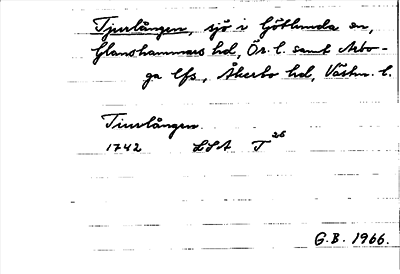 Tjurlången, sjö i Götlunda sn,
Glanshammars hd, Ör. l. samt Arbo-
ga lfs, Åkerbo hd, Västm. l.
Tiurlången
1742 LSA T 26
G.B. 1966.